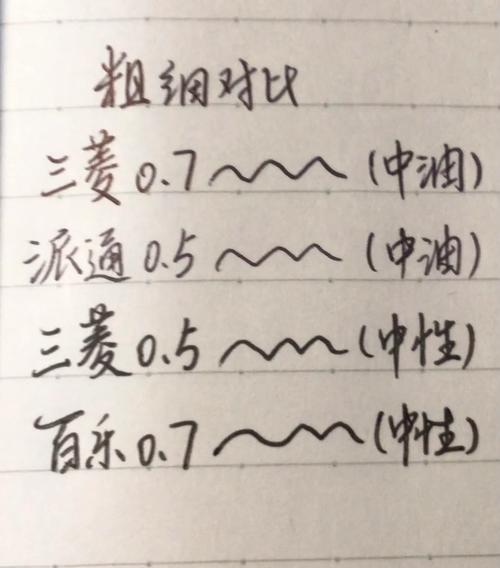 粗细对比
三菱 0.7 (中油)
派通 0.5 (中油)
三菱 0.5 (中性)
百乐 0.7 (中性)